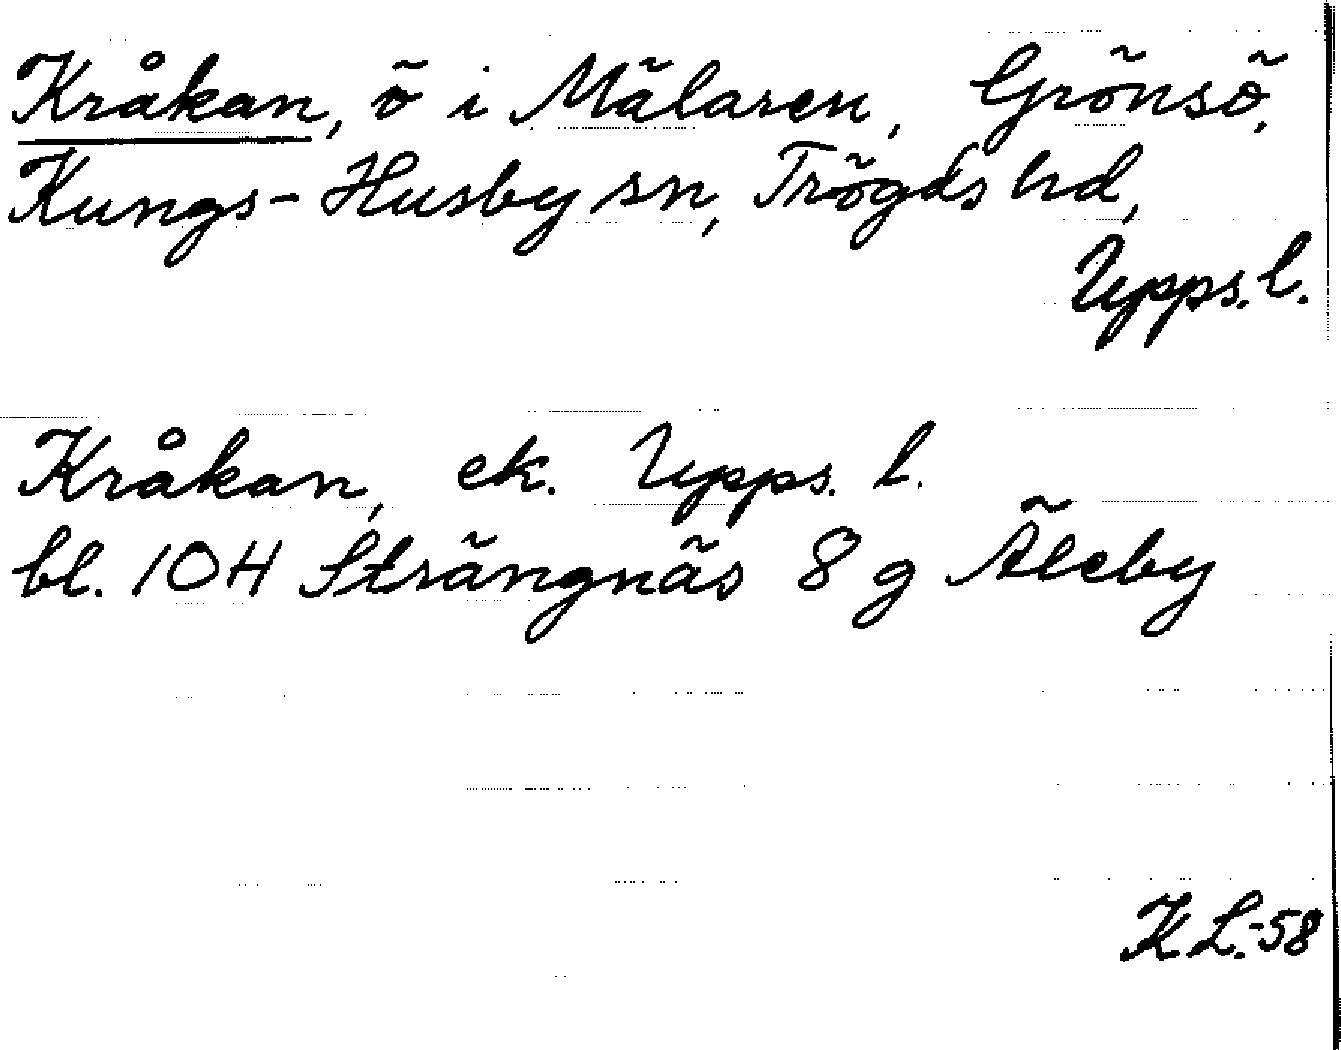 Kråkan, ö i Mälaren, Grönsö,
Kungs-Husby sn, Trögds hd,
Upps. l.
Kråkan, ek. Upps. l.
bl. 10H Strängnäs 8 g Äleby
K L.-58